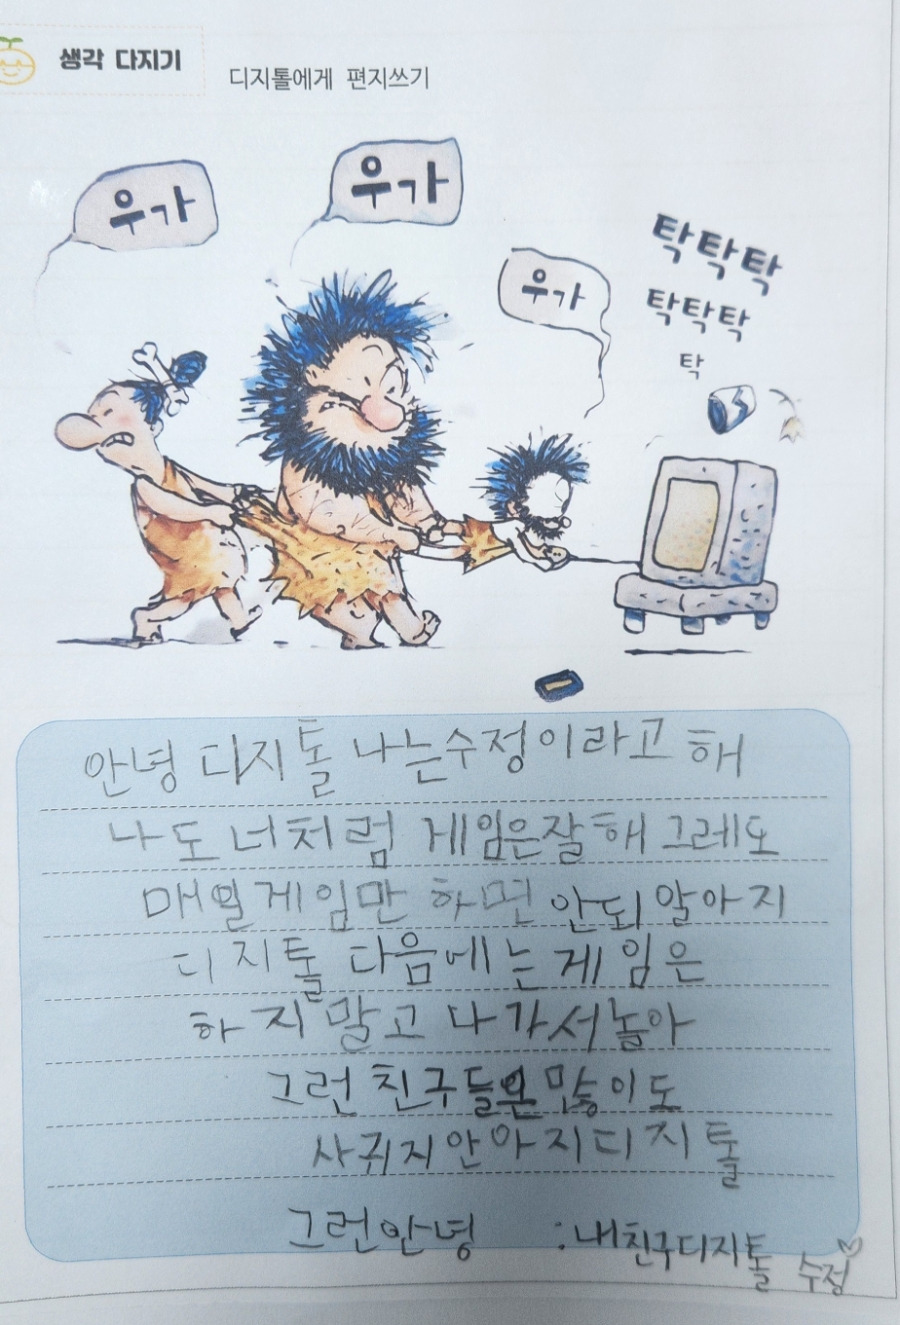 생각 다지기
디지톨에게 편지쓰기
우가
우가
우가
탁탁탁
탁탁탁
탁
안녕 디지톨 나는수정이라고 해
나도 너처럼 게임은잘해 그레도
매일게임만 하면 안되 알아지
디지톨 다음에는게임은
하지말고 나가서놀아
그런친구들은 많이도
사귀지안아지디지톨
그런안녕 :내친구디지톨 수정